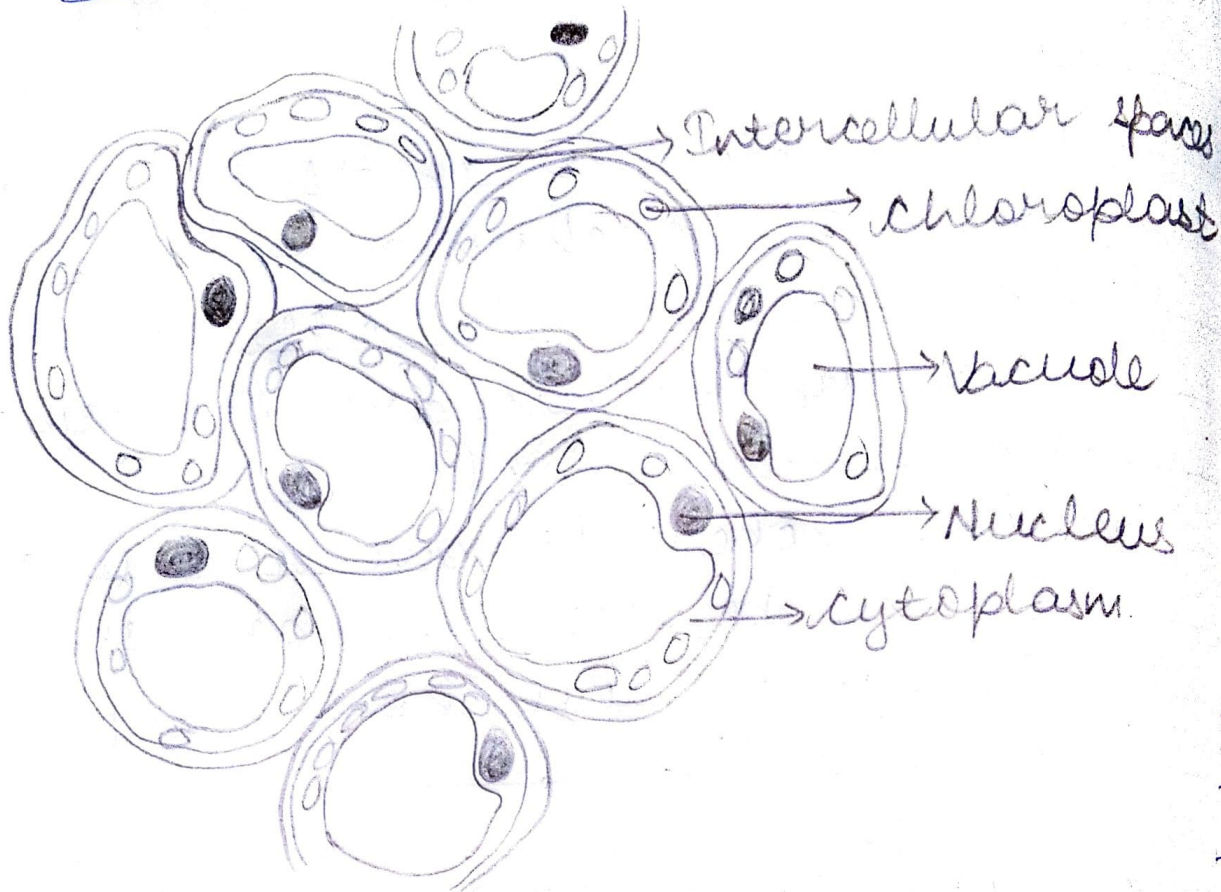 Intercellular spaces
chloroplast
Vacuole
Nucleus
cytoplasm.